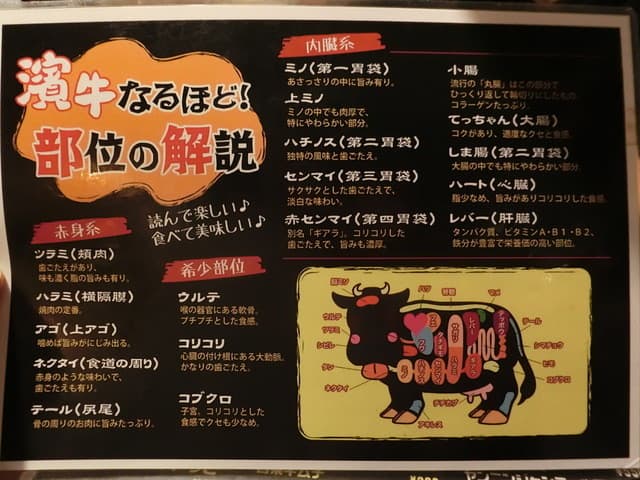 濱牛なるほど!
部位の解説
読んで楽しい♪
食べて美味しい♪
赤身系
ツラミ(頬肉)
歯ごたえがあり、
味も濃く脂の旨みも有り。
ハラミ(横隔膜)
焼肉の定番。
アゴ(上アゴ)
噛めば旨みがにじみ出る。
ネクタイ(食道の周り)
赤身のような味わいで、
歯ごたえも有り。
テール(尻尾)
骨の周りのお肉に旨みたっぷり。
希少部位
ウルテ
喉の器官にある軟骨。
プチプチとした食感。
コリコリ
心臓の付け根にある大動脈。
かなりの歯ごたえ。
コブクロ
子宮、コリコリとした
食感でクセも少なめ。
内臓系
ミノ(第一胃袋)
あっさりの中に旨み有り。
上ミノ
ミノの中でも肉厚で、
特にやわらかい部分。
ハチノス(第二胃袋)
独特の風味と歯ごたえ。
センマイ(第三胃袋)
サクサクとした歯ごたえで、
淡白な味わい。
赤センマイ(第四胃袋)
別名「ギアラ」コリコリした
歯ごたえで、旨みも濃厚。
小腸
流行の「丸腸」はこの部分で
ひっくり返して輪切りにしたもの
コラーゲンたっぷり
てっちゃん(大腸)
コクがあり、適度なクセと食感
しま腸(第二胃袋)
大腸の中でも特にやわらかい部分
ハート(心臓)
脂少なめ、旨みがありコリコリした食感
レバー(肝臓)
タンパク質、ビタミンA・B1・B2、
鉄分が豊富で栄養価の高い部位。
脳ミソ
ハツ
マメ
ウルテ
ツラミ
シビレ
タン
ネクタイ
テール
シマチョウ
ヒモ
コブクロ
チチカブ
アキレス
レバー
サガリ
ハラミ
テッポウ